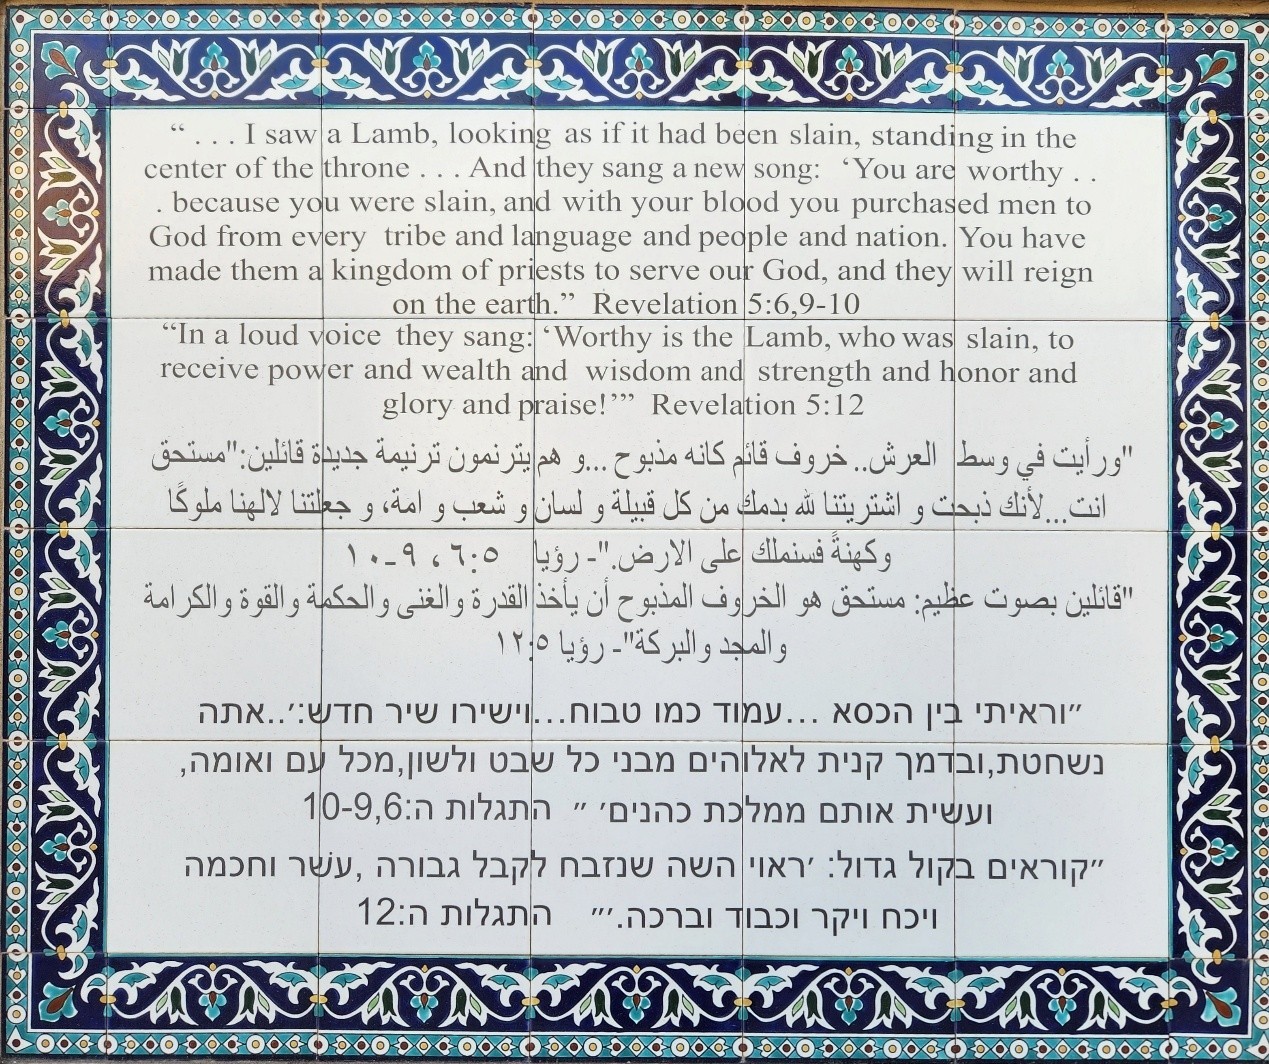 “ . . . I saw a Lamb, looking as if it had been slain, standing in the
center of the throne . . . And they sang a new song: ‘You are worthy . .
. because you were slain, and with your blood you purchased men to
God from every tribe and language and people and nation. You have
made them a kingdom of priests to serve our God, and they will reign
on the earth.” Revelation 5:6,9-10
“In a loud voice they sang: ‘Worthy is the Lamb, who was slain, to
receive power and wealth and wisdom and strength and honor and
glory and praise!’” Revelation 5:12
"ورأيت في وسط العرش.. خروف قائم كانه مذبوح ...و هم يترنمون ترنيمة جديدة قائلين:"مستحق
انت...لأنك ذبحت و اشتريتنا لله بدمك من كل قبيلة و لسان و شعب و امة، و جعلتنا لالهنا ملوكًا
وكهنةً فسنملك على الارض."- رؤيا ٦:٥ ، ٩-١٠
"قائلين بصوت عظيم: مستحق هو الخروف المذبوح أن يأخذ القدرة والغنى والحكمة والقوة والكرامة
والمجد والبركة"- رؤيا ١٢:٥
״וראיתי בין הכסא ...עמוד כמו טבוח...וישירו שיר חדש:׳..אתה
נשחטת,ובדמך קנית לאלוהים מבני כל שבט ולשון,מכל עם ואומה,
ועשית אותם ממלכת כהנים׳ ״ התגלות ה:9,6-10
״קוראים בקול גדול: ׳ראוי השה שנזבח לקבל גבורה ,עשׁר וחכמה
ויכח ויקר וכבוד וברכה.׳״ התגלות ה:12